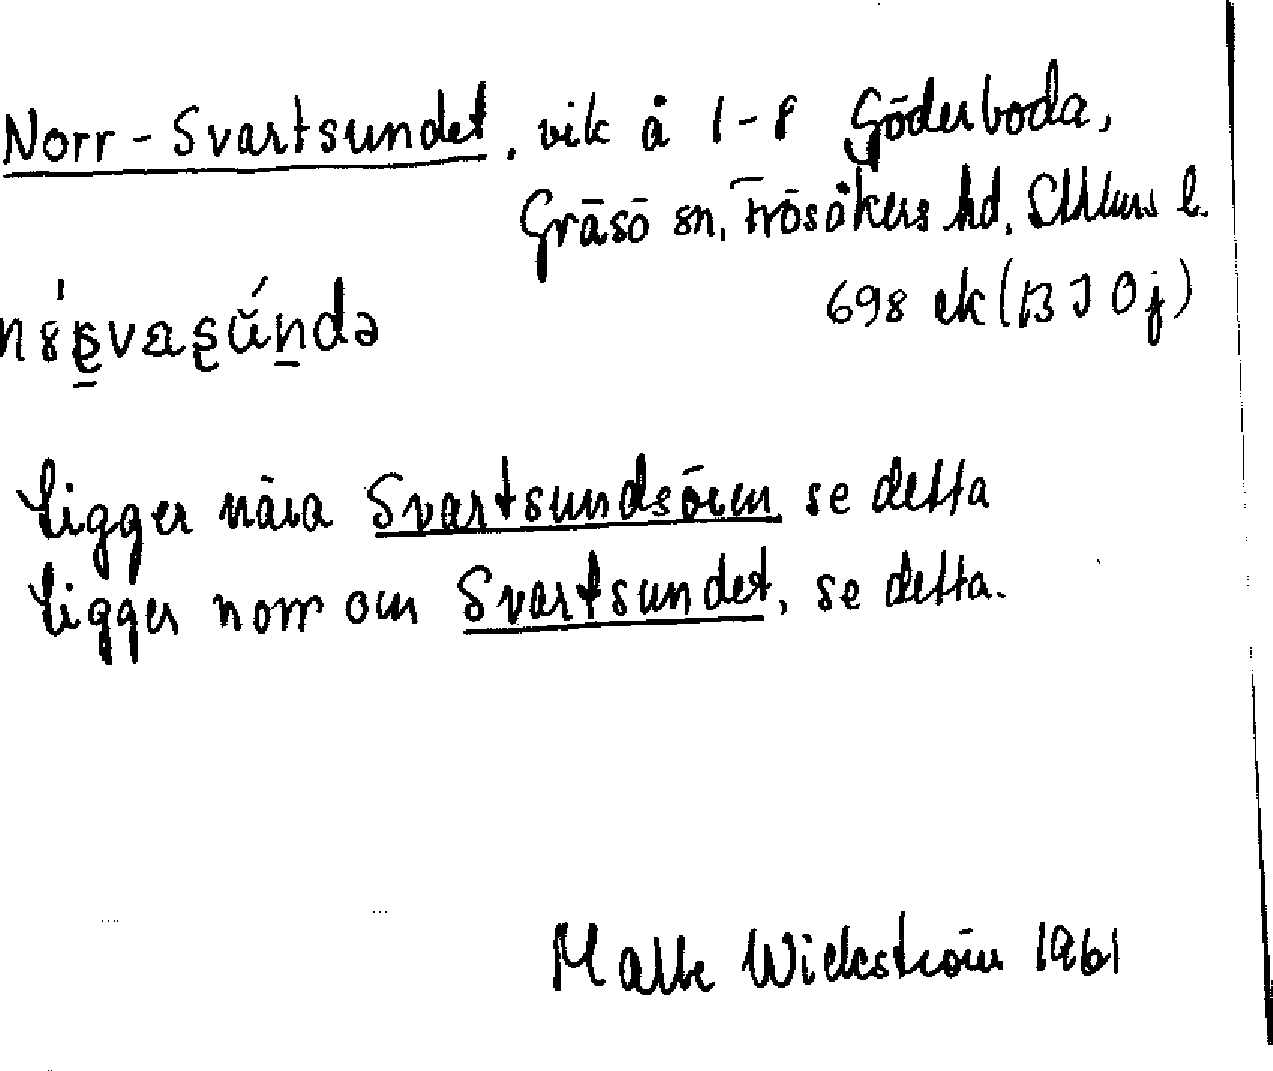 Norr-Svartsundet, vik å 1-8 Söderboda,
Gräsö sn, Frösåkers hd,
698 ek (13 J 0 j)
Ligger nära Svartsundsören se detta
Ligger norr om Svartsundet, se detta.
Malte Wickström 1961